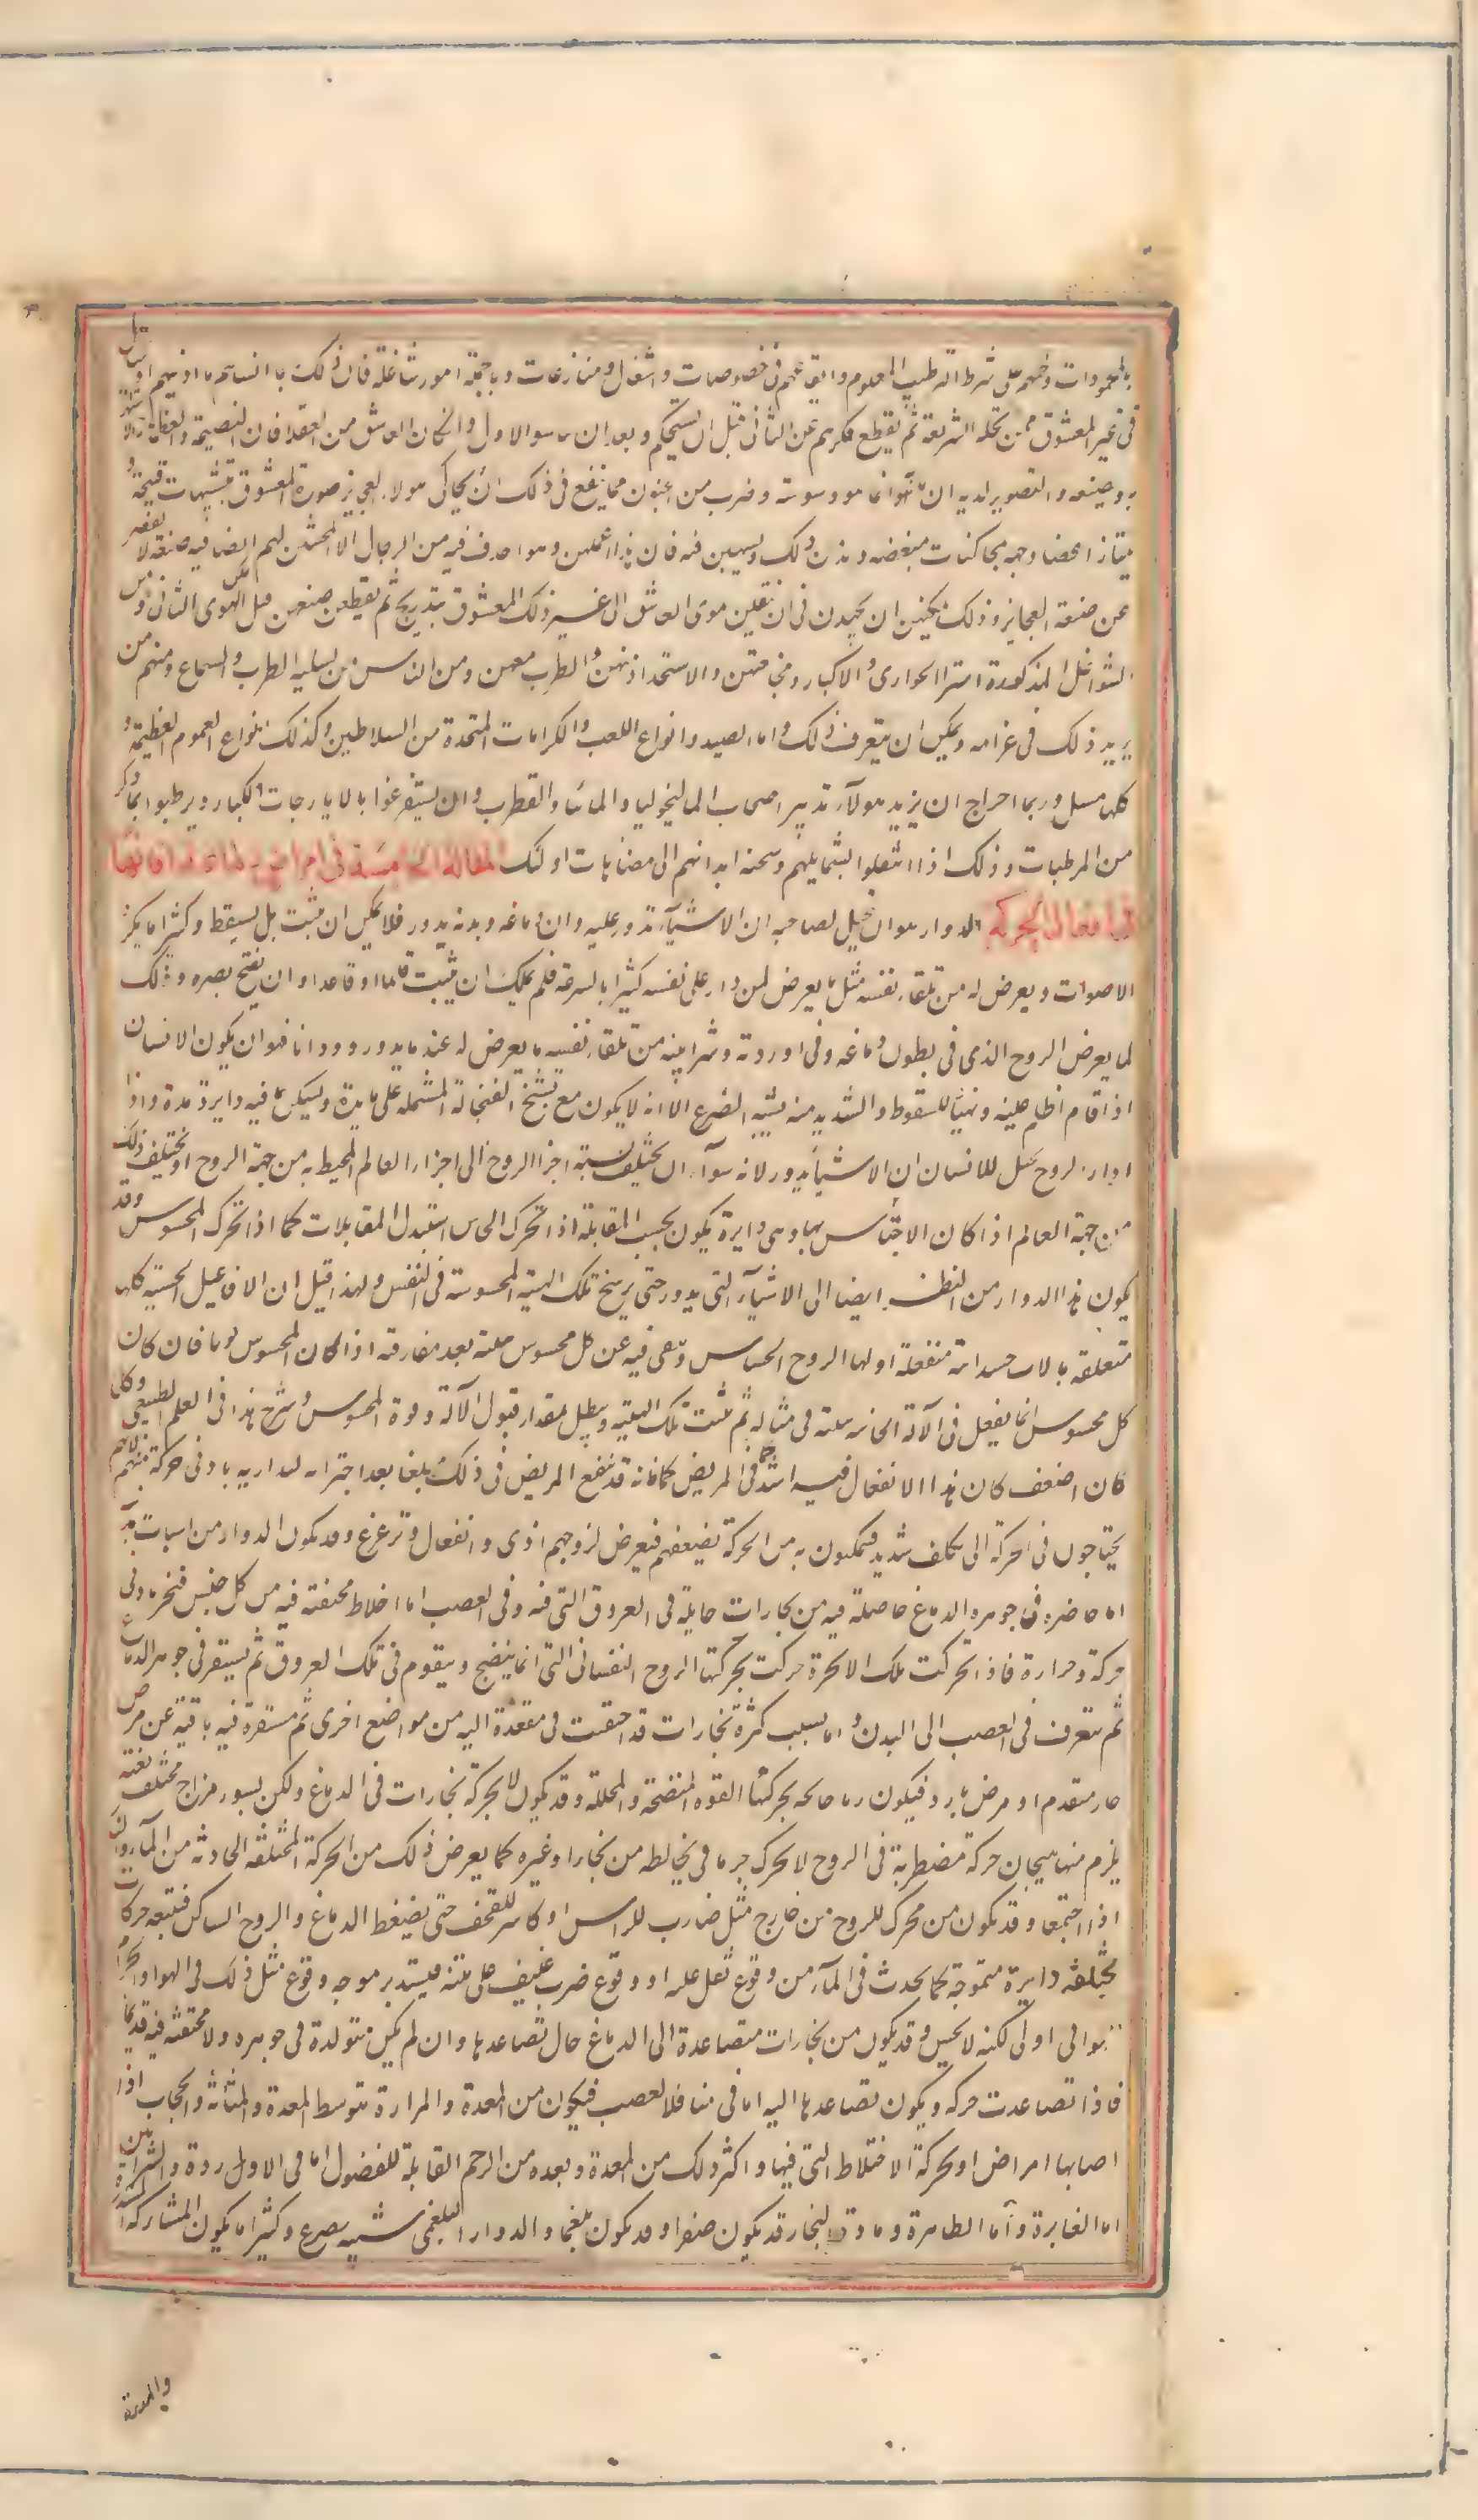 بالمحمودات وحملهم على شرط الترطيب المعلوم وايقاعهم في خصومات واشغال ومنازعات وبالجملة امور شاغلة فان ذلك ربما انساهم ما ادنفهم او يحتال
في غير المعشوق ممن تحله الشريعة ثم يقطع فكرهم عن الثاني قبل ان يستحكم وبعد ان يتناسوا الاول وان كان العاشق من العقلا فان النصيحة والعظة والاستهزاء
به وتعنيفه والتصوير لديه ان ما به انما هو وسوسة وضرب من الجنون مما ينفع في ذلك ان يحاكي هولاء العجايز صورة المعشوق بتشبيهات قبيحة و
يمثلن اعضا وجهه بمحاكيات مبغضة ويدمن ذلك ويسهبن فيه فان هذا عملهن وهن احذق فيه من الرجال الا المخنثين لهم ايضا فيه صنعة لا تقصر
عن صنعة العجايز وذلك يمكنهن ان يجهدن في ان ينقلن هوى العاشق الى غير ذلك المعشوق بتدريج ثم يقطعن صنعهن قبل تمكن الهوى الثاني ومن
الشواغل المذكورة اشترا الجواري والاكثار من مجامعتهن والاستجداد منهن والطرب معهن ومن الناس من يسليه الطرب والسماع ومنهم من
يزيد ذلك في غرامه ويمكن ان يتعرف ذلك واما الصيد وانواع اللعب والكرامات المتجددة من السلاطين وكذلك انواع الغموم العظيمة و
كلها مسل وربما احتاج ان يزيد هولاء تدبير اصحاب الماليخوليا والمانيا والقطرب وان يستفرغوا بالايارجات الكبار ويرطبوا بما ذكر
من المرطبات وذلك اذا انتقلوا بشمايلهم وسحنة ابدانهم الى مضاهات اولئك المقالة الخامسة في امراض دماغية افاتها
في افعال الحركة الدوار هو ان يتخيل لصاحبه ان الاشياء تدور عليه وان دماغه وبدنه يدور فلا يمكن ان يثبت بل يسقط وكثيرا ما يكره
الاصوات ويعرض له من تلقاء نفسه مثل ما يعرض لمن دار على نفسه كثيرا بالسرعة فلم يملك ان يثبت قايما او قاعدا او ان يفتح بصره وذلك
لما يعرض الروح الذي في بطون دماغه وفي اوردته وشرايينه من تلقاء نفسه ما يعرض له عند ما يدور دورانا فهو ان يكون الانسان
اذا قام اظلم عينه وتهيئا للسقوط والشديد منه يشبه الصرع الا انه لا يكون مع تشنج الفنجانة المشتملة على ما يدور ويسكن ما فيه دايرة مدة واذا
ادار الروح تخيل للانسان ان الاشياء يدور لانه سوآء ان يختلف نسبة اجزا الروح الى اجزاء العالم المحيط به من جهة الروح او يختلف ذلك
من جهة العالم اذا كان الاحساس بها وهي دايرة يكون بحسب المقابلة فاذا تحرك الحاس استبدل المقابلات كما اذا تحرك المحسوس وقد
يكون هذا الدوار من النظر ايضا الى الاشياء التي يدور حتى يرسخ تلك الهيئة المحسوسة في النفس ولهذا قيل ان الافاعيل الحسية كلها
متعلقة بالات جسدانية منفعلة اولها الروح الحساس وتبقى فيه عن كل محسوس هيئة بعد مفارقته اذا كان المحسوس قويا فان كان
كل محسوس انما يفعل في الآلة الحاسة هيئة هي مثاله ثم يثبت تلك الهيئة ويبطل بمقدار قبول الآلة وقوة المحسوس وشرح هذا في العلم الطبيعي وكل
كان اضعف كان هذا الانفعال فيه اشد كما في المريض فانه قد يبلغ المريض في ذلك مبلغا بعيدا حتى انه ليدار به بادنى حركة منه لانهم
يحتاجون في الحركة الى تكلف شديد فيتمكنون به من الحركة لضعفهم فيعرض لروحهم اذى وانفعال وتزعزع وقد يكون الدوار من اسباب بدنية
اما حاضرة في جوهر الدماغ حاصلة فيه من بخارات حايلة في العروق التي فيه وفي العصب اما اخلاط محتقنة فيه من كل جنس فتبخر بادنى
حركة وحرارة فاذا تحركت تلك الابخرة حركت بحركتها الروح النفساني التي انما ينضج ويتقوم في تلك العروق ثم يستقر في جوهر الدماغ
ثم يتفرق في العصب الى البدن واما بسبب كثرة بخارات قد احتقنت في مقعدة اليه من مواضع اخرى ثم مستقرة فيه باقية عن مرض
حار متقدم او مرض بارد فيكون رياحا فجة يحركها القوة المنضجة والمحللة وقد يكون لا بحركة بخارات في الدماغ ولكن لسوء مزاج مختلف بغتة
يلزم منها هيجان حركة مضطربة في الروح لا لمحرك جرماني يخالطه من بخار او غيره كما يعرض ذلك من الحركة المختلفة الحادثة من المآء والنار
اذا اجتمعا وقد يكون من محرك للروح من خارج مثل ضارب للراس او كاسر للقحف حتى يضغط الدماغ والروح الساكن فيتبعه حركات
مختلفة دايرة متموجة كما يحدث في المآء من وقوع ثقل عليه او وقوع ضرب عنيف على متنه فيستدير موجه وقوع مثل ذلك في الهواء والجرم
الهوائي اولى لكنه لا يحس وقد يكون من بخارات متصاعدة الى الدماغ حال تصاعدها وان لم يكن متولدة في جوهره ولا محتقنة فيه قديما
فاذا تصاعدت حركه ويكون تصاعدها اليه اما في منافذ العصب فيكون من المعدة والمرارة بتوسط المعدة والمثانة والحجاب اذا
اصابها امراض او بحركة الاخلاط التي فيها واكثر ذلك من المعدة وبعده من الرحم القابلة للفضول اما في الاوردة والشرايين
اما الغايرة واما الظاهرة ومادة البخار قد يكون صفرا وقد يكون بلغما والدوار البلغمي شبيه بصرع وكثيرا ما يكون المشاركة
والمعدة